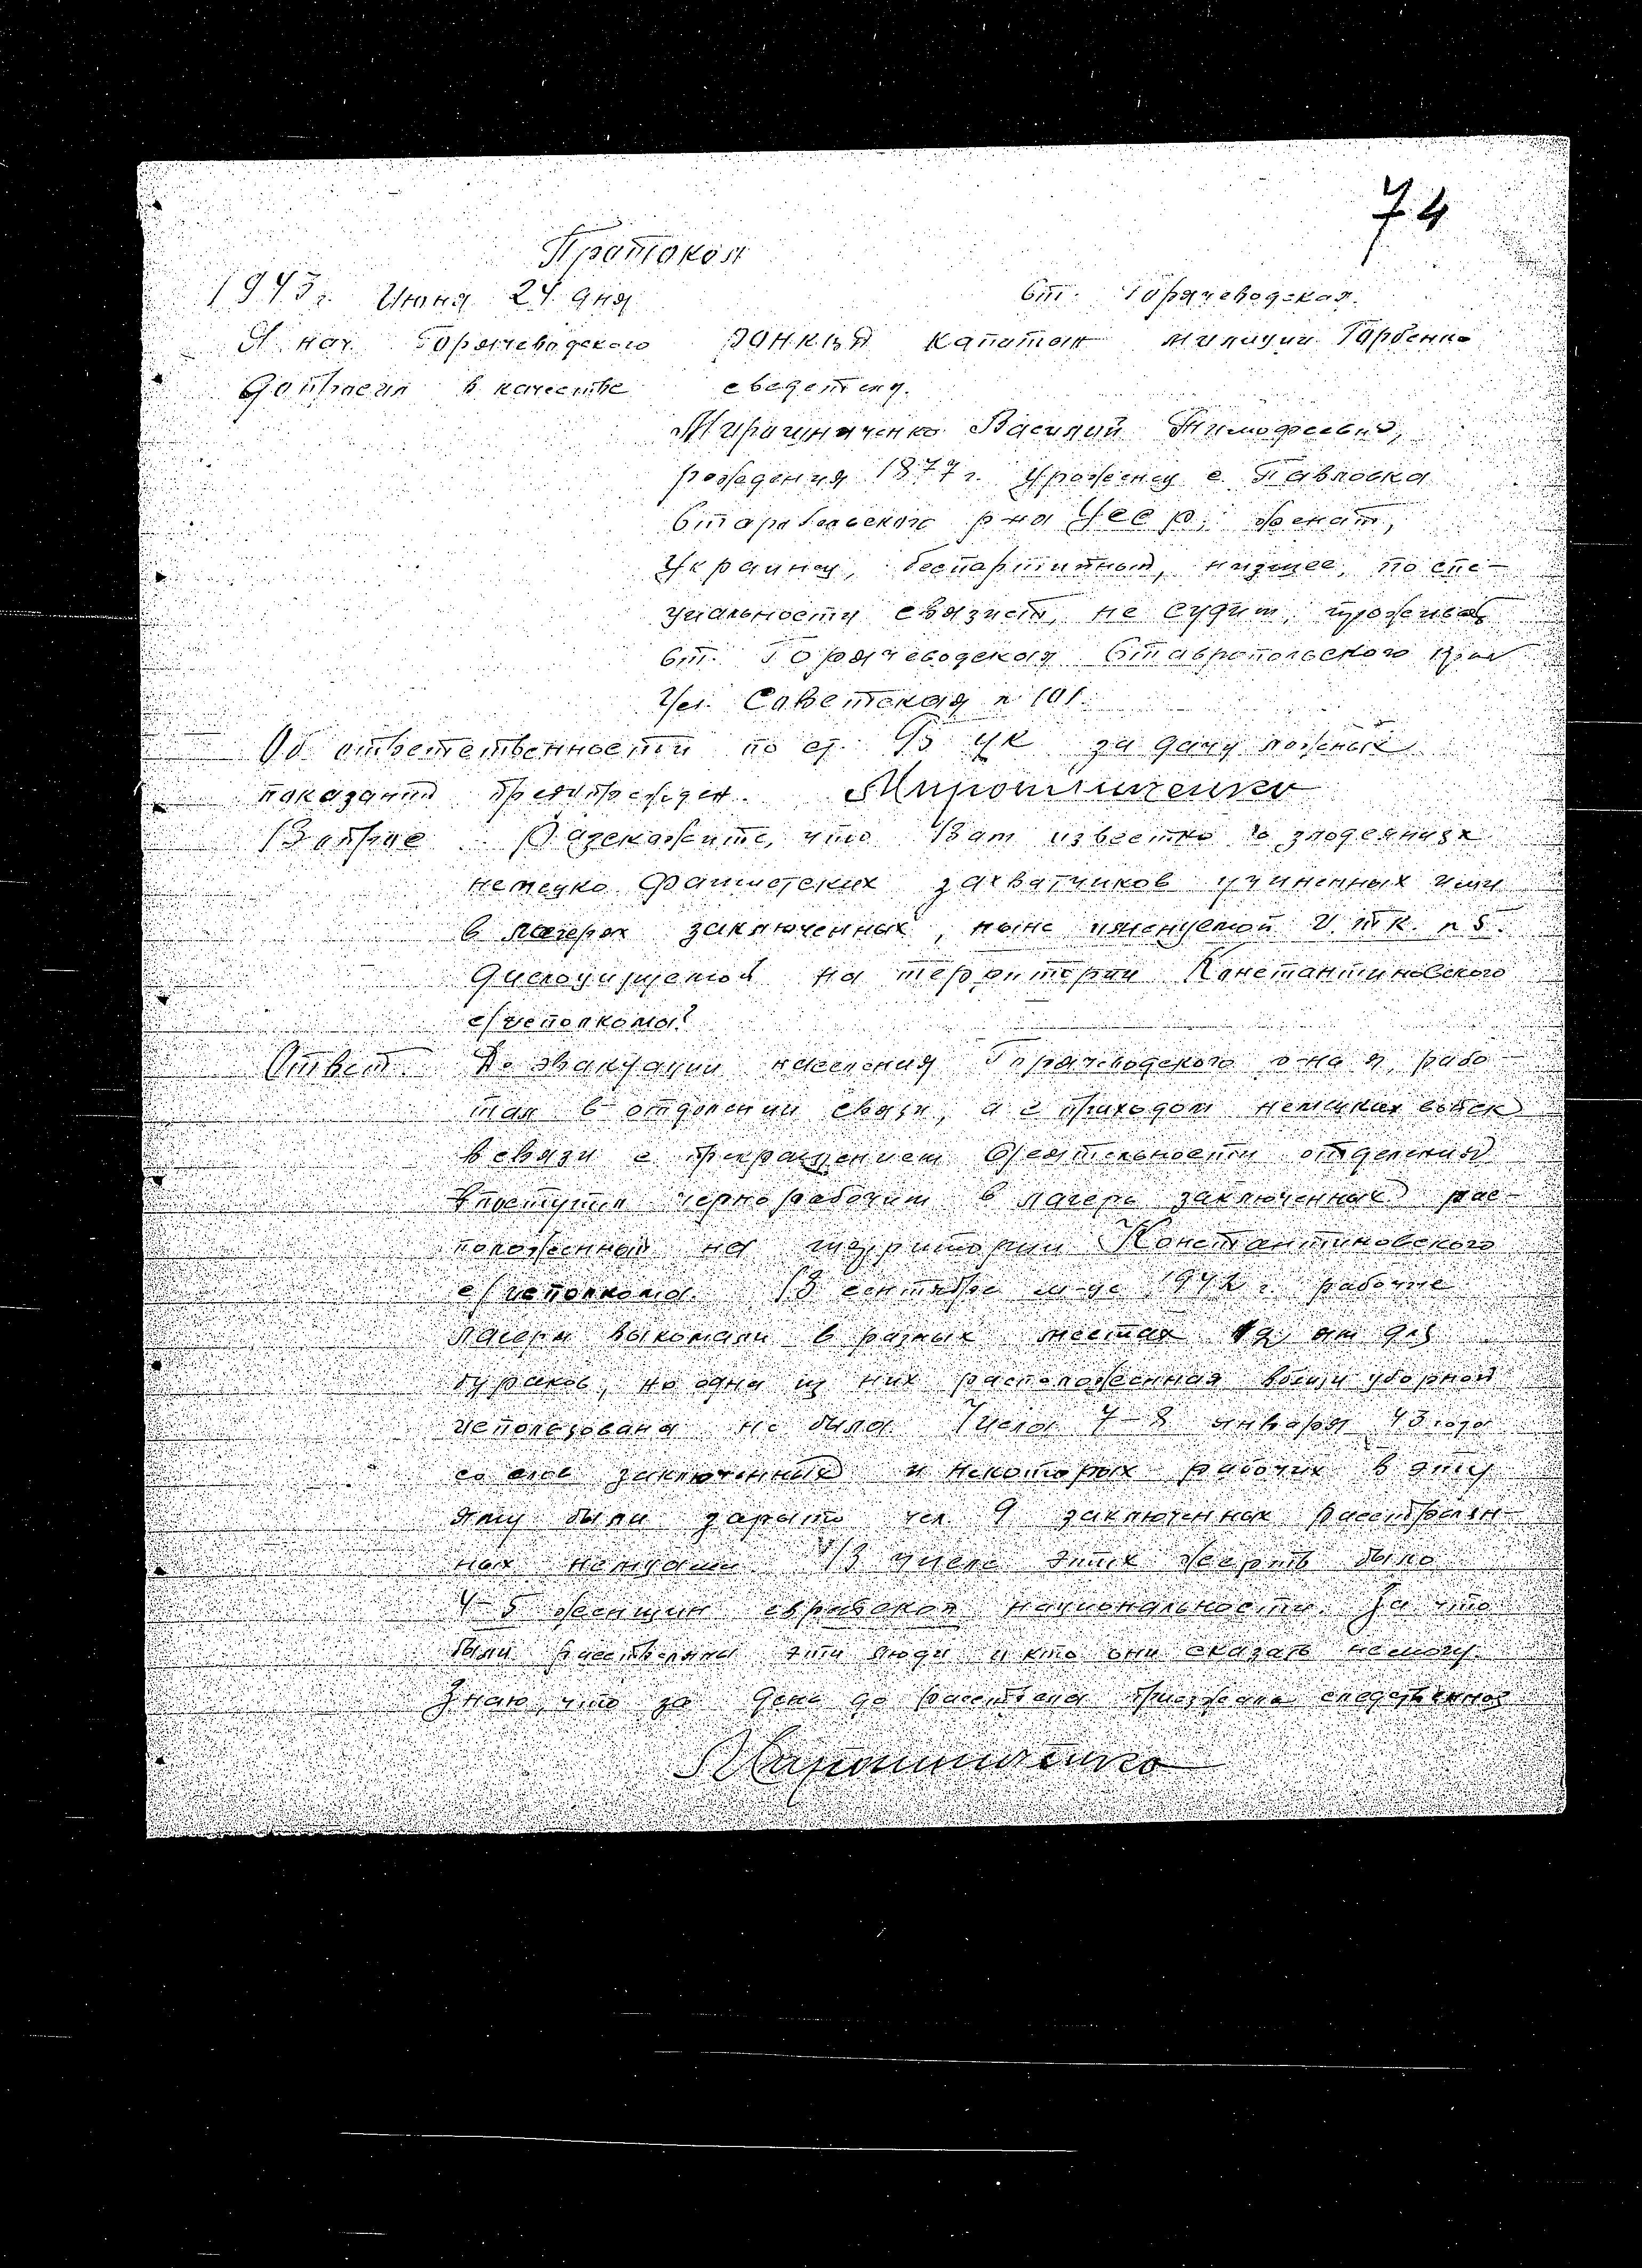 74
Пратокол
1943 г. Июня 24 дня ст. Горячеводская.
Я нач. Горячеводского РОНКВД капитан милиции Горбенко
допросил в качестве сведетеля.
Мирошниченко Василий Тимофеевич,
рождения 1877 г. урожец с. Павловка
Старобельского р-на УССР, женат,
Украинец, беспартийный, низшее, по спе-
циальности связист, не судим, прожив
ст. Горячеводская Ставропольского края
Ул. Советская n 101.
Об ответственности по ст. 95 УК за дачу ложных
показаний предупрежден. Мирошниченко
Вопрос Разскажите, что Вам известно о злодеяниях
немецко фашистских захватчиков учиненных ими
в лагерях заключенных, ныне именуемой И.Т.К. n 5.
дислоцируемой на территории Константиновского
с/исполкома?
Ответ. До эвакуации населения Горячеводского р-на я рабо-
тал в отделении связи, а с приходом немецких войск
в связи с прекращением деятельности отделения
поступил чернорабочим в лагерь заключенных рас-
положенный на территории Константиновского
с/исполкома. В сентябре м-це 1942 г. рабочие
лагеря выкопали в разных местах ям для
бураков, но одна из них расположенная вблизи уборной
использована не была. Числа 7-8 января 43 года
со слов заключенных и некоторых рабочих в эту
яму были зарыто чел 9 заключенных расстрелян-
ных немцами. В числе этих жертв было
4-5 женщин еврейской национальности. За что
были расстреляны эти люди и кто они сказать немогу.
Знаю, что за день до расстрела приезжала следственная
Мирошниченко